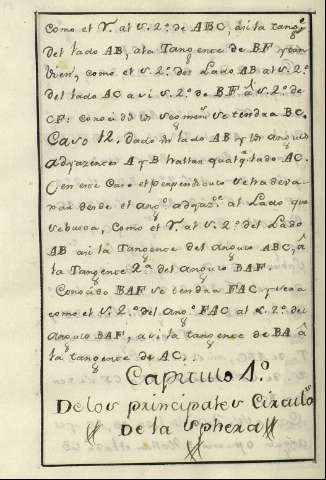 Como el r. al s. 2.º de ABC, asi la tang.te
del lado AB, ala Tangence de BF y tan
vien, como el s. 2.º del Lado AB al s. 2.º
del lado AC asi s. 2.º de BF al s. 2.º de
CF: Conocidos segmen.s se tendra BC.
Caso 12. Dado un lado AB y un angulo
adyazences A y B hallar qualq.r lado AC.
en este Caso el perpendiculo se trade ra
rau desde el ang.o adyaz.e al Lado que
se busca, Como el r. al s. 2.º del Lado
AB asi la Tangence del angulo ABC, â
la Tangence 2.ª del angulo BAF.
Conozido BAF se tendra FAC, y sea
como el s. 2.º del Ang.o FAC al s. 2.º del
angulo BAF, asi la tangence de BA â
la tangence de AC.
Capitulo 1.º
De los principales Circulos
De la sphera